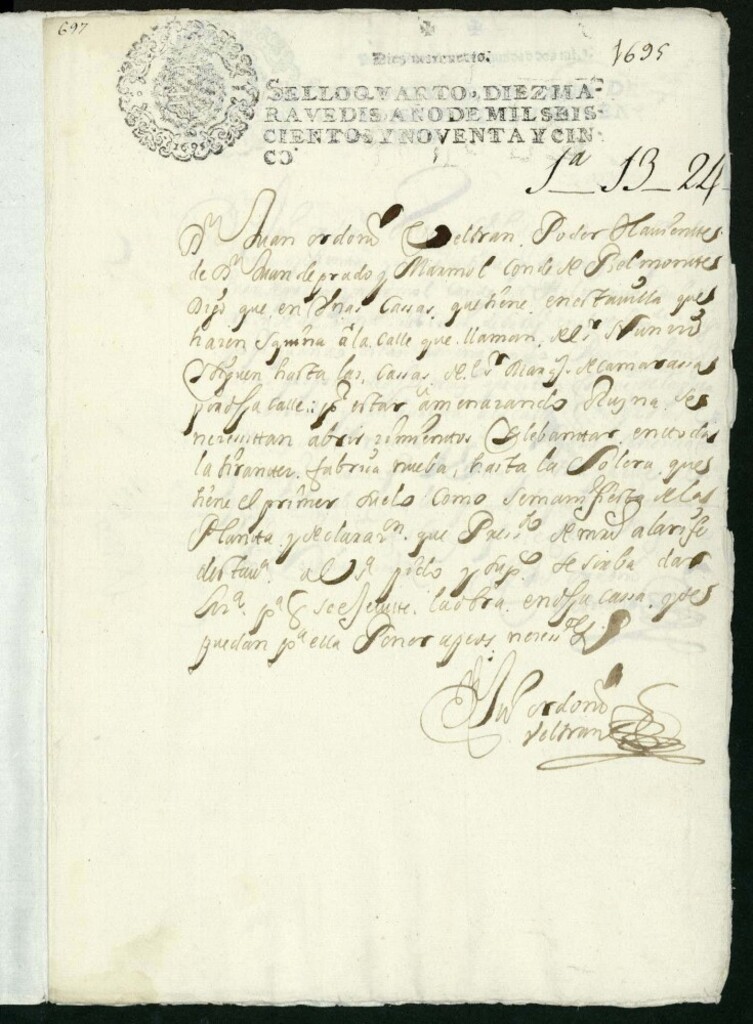 697
1695
Diez maravedis.
SELLO QVARTO, DIEZ MA-
RAVEDIS, AÑO DE MIL SEIS-
CIENTOS Y NOVENTA Y CIN-
CO.
1ª 13 24
Dn Juan ordonz Beltran Poder
de Dn Juan de prado y Marmol Conde de Belmonte
Digo que, en Unas Cassas, que tiene, en esta villa que
hazen esquina à la Calle que llaman, del Sr Nunzio
hasta las, Cassas, del Sr Marqs. de Camarassa
por dha Calle: pr estar amenazando Ruyna, se
nezessitan abrir zimientos leebantar, en todas
la tirantez fabrica nueba, hasta la Solera, que
tiene el primer suelo Como se manifiesta de la
Planta, y declarazn. que Press.to de mro alarife
desta va. a Vª pido y Supco. se sirba dar
Lizª. pª q se ejecute, la obra, en dha Cassa, que
puedan pª ella Poner
Jun ordonz
Veltran